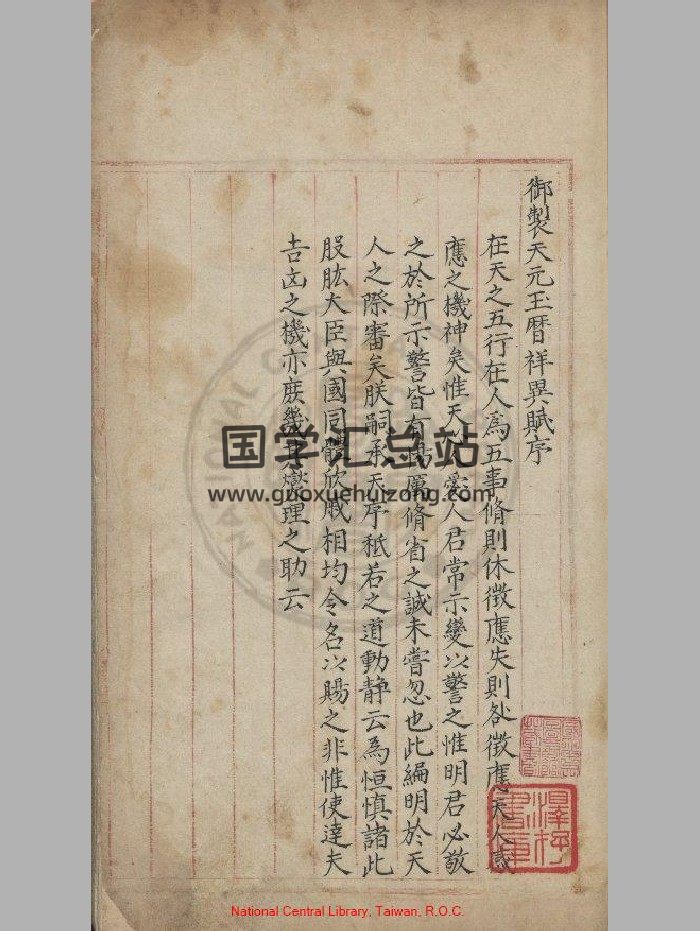 御製天元玉暦祥異賦序
在天之五行在人爲五事脩則休徵應失則咎徵應天人感
應之機神矣惟天愛人君常示變以警之惟明君必敬
之於所示警皆有惕厲脩省之誠未嘗忽也此編明於天
人之際審矣朕嗣承天序秪若之道動静云為恒慎諸此
股肱大臣與國同體欣戚相均令名以賜之非惟使達夫
吉凶之機亦庶幾其爕理之助云
澤存書庫
国学汇总站
www.guoxuehuizong.com
National Central Library, Taiwan, R.O.C.